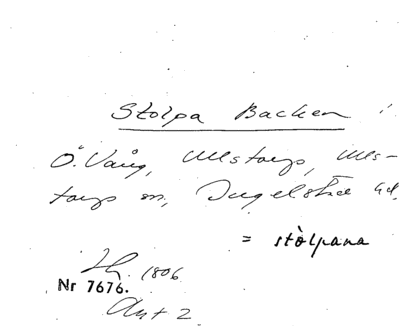 Stolpa Backen
Ö. Vång, Ullstorp, Ulls-
torps sn, Ingelstad hd.
= stòlpana
1806
Nr 7676.
Akt 2